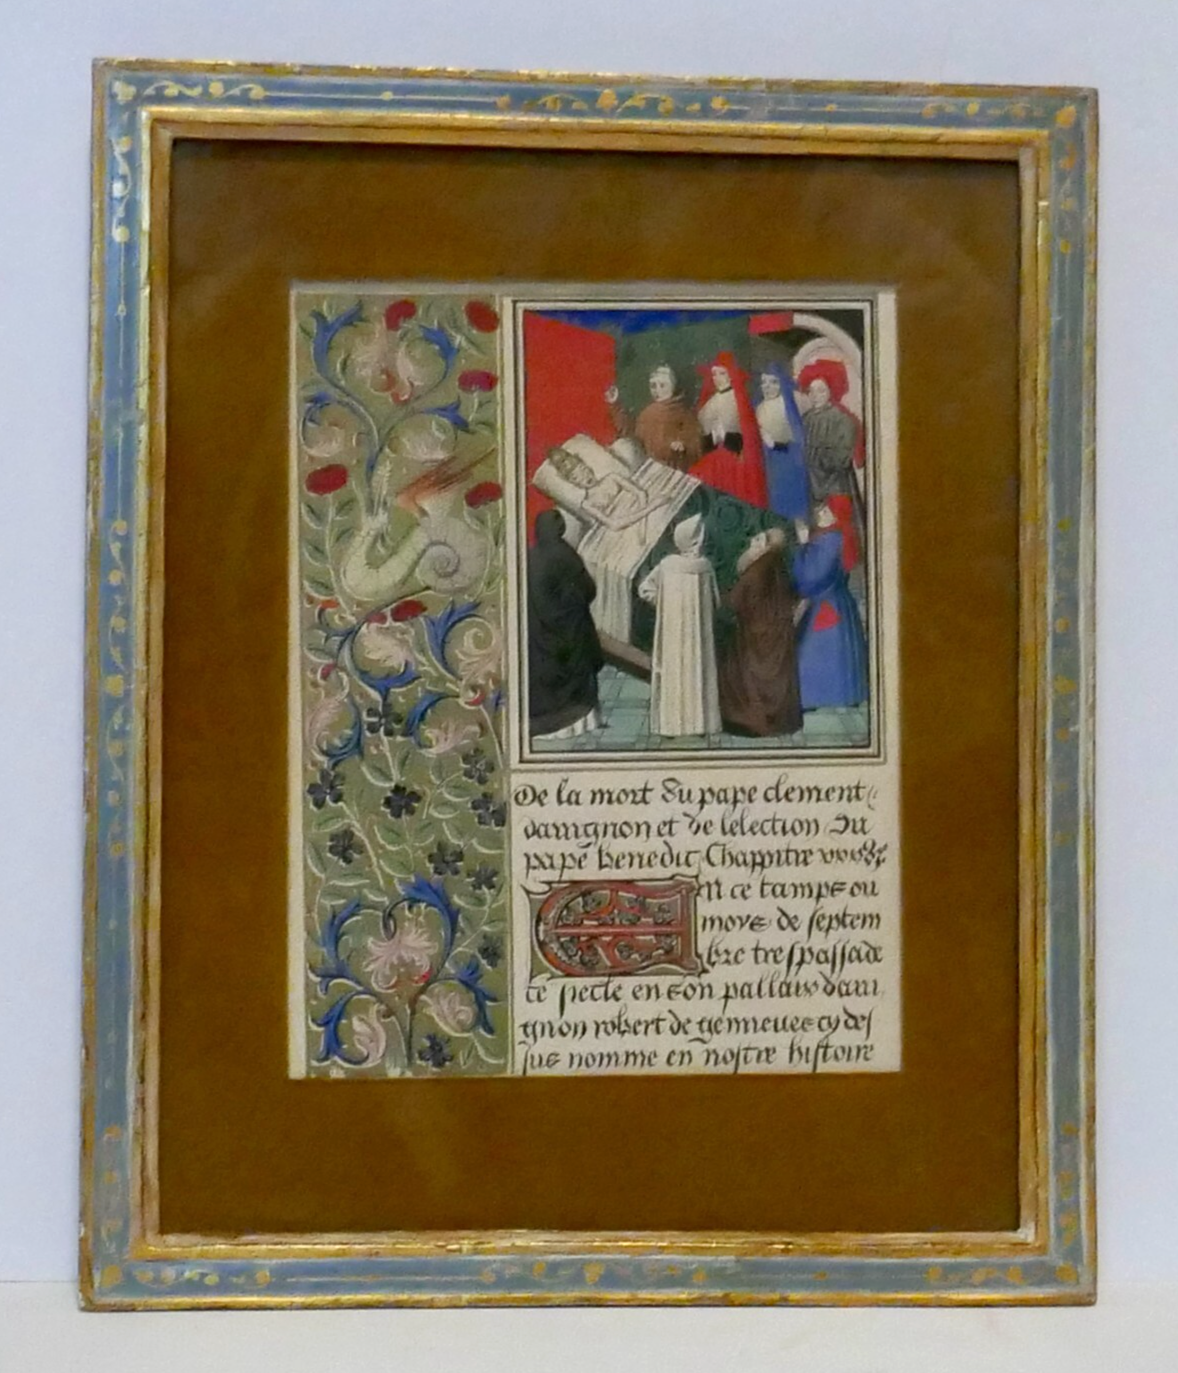 De la mort du pape clement
dauignon et de lelection du
pape benedic Chappitre
En ce tamps ou
moys de septem
bre trespassa de
ce siecle en son pallais daui
gnon robert de genneues cy des
sus nomme en nostre histoire